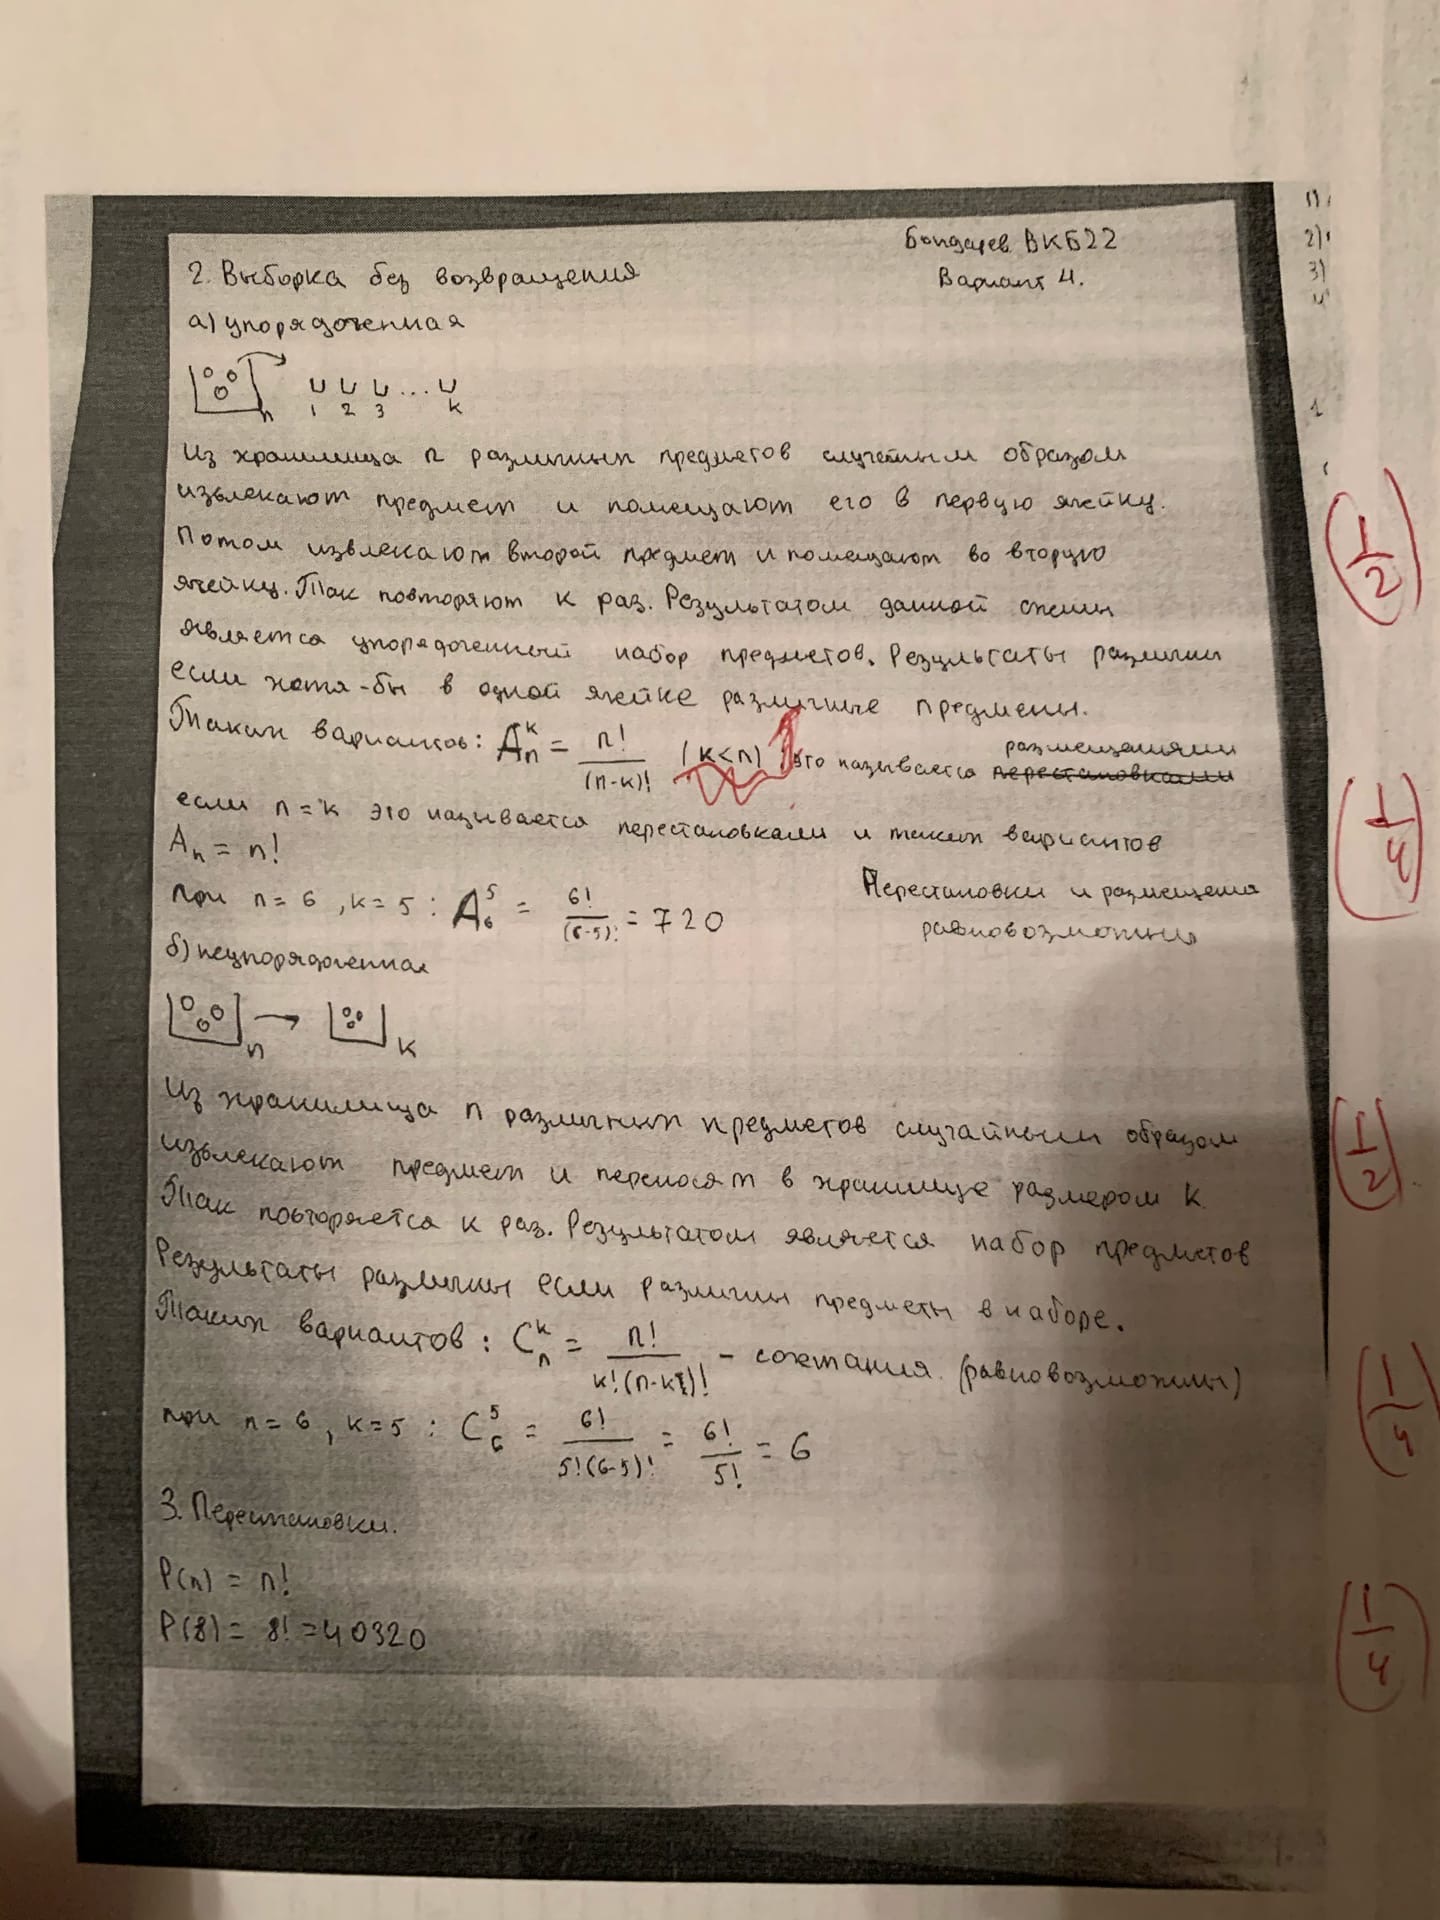 Бондарев ВКБ22
Вариант 4.
2. Выборка без возвращения
а) упорядоченная
n 1 2 3 ... k
Из хранилища n различных предметов случайным образом
извлекают предмет и помещают его в первую ячейку.
Потом извлекают второй предмет и помещают во вторую
ячейку. Так повторяют k раз. Результатом данной схемы
является упорядоченный набор предметов. Результаты различны
если хотя-бы в одной ячейке различные предметы.
Таких вариантов: A_n^k = n!/(n-k)! (k<n) это называется перестановками размещениями
если n=k это называется перестановками и таких вариантов
A_n = n!
при n=6, k=5 : A_6^5 = 6!/(6-5)! = 720
Перестановки и размещения
равновозможны
б) неупорядоченная
n k
Из хранилища n различных предметов случайным образом
извлекают предмет и переносят в хранилище размером k
Так повторяется k раз. Результатом является набор предметов
Результаты различны если различны предметы в наборе.
Таких вариантов: C_n^k = n!/k!(n-k)! – сочетания. (равновозможны)
при n=6, k=5 : C_6^5 = 6!/5!(6-5)! = 6!/5! = 6
3. Перестановки.
P(n) = n!
P(8) = 8! = 40320
1)
2)
3)
1
1/2
1/4
1/2
1/4
1/4